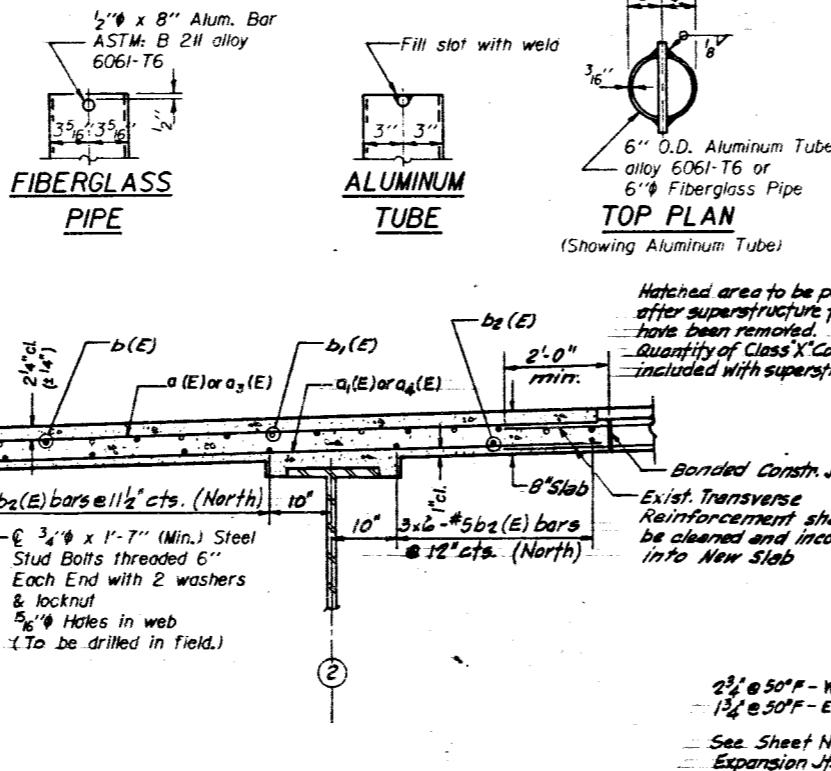 1/2"φ x 8" Alum. Bar
ASTM: B 211 alloy
6061-T6
3 5/16" 3 5/16"
1/2"
FIBERGLASS
PIPE
Fill slot with weld
3" 3"
ALUMINUM
TUBE
3/16"
1/8
6" O.D. Aluminum Tube
alloy 6061-T6 or
6"φ Fiberglass Pipe
TOP PLAN
(Showing Aluminum Tube)
Hatched area to be
after superstructure
have been removed.
Quantity of Class "X"
included with
2 1/4" cl.
(± 1/4")
b(E)
a(E) or a3(E)
b1(E)
a1(E) or a4(E)
b2(E)
2'-0"
min.
b2(E) bars @ 11 1/2" cts. (North)
10"
10"
1" cl.
8" Slab
3x6-#5 b2(E) bars
@ 12" cts. (North)
Bonded Constr.
Exist. Transverse
Reinforcement
be cleaned and
into New Slab
℄ 3/4"φ x 1'-7" (Min.) Steel
Stud Bolts threaded 6"
Each End with 2 washers
& locknut
15/16"φ Holes in web
(To be drilled in field.)
2
2 3/4" @ 50°F - W
1 3/4" @ 50°F - E
See Sheet
Expansion